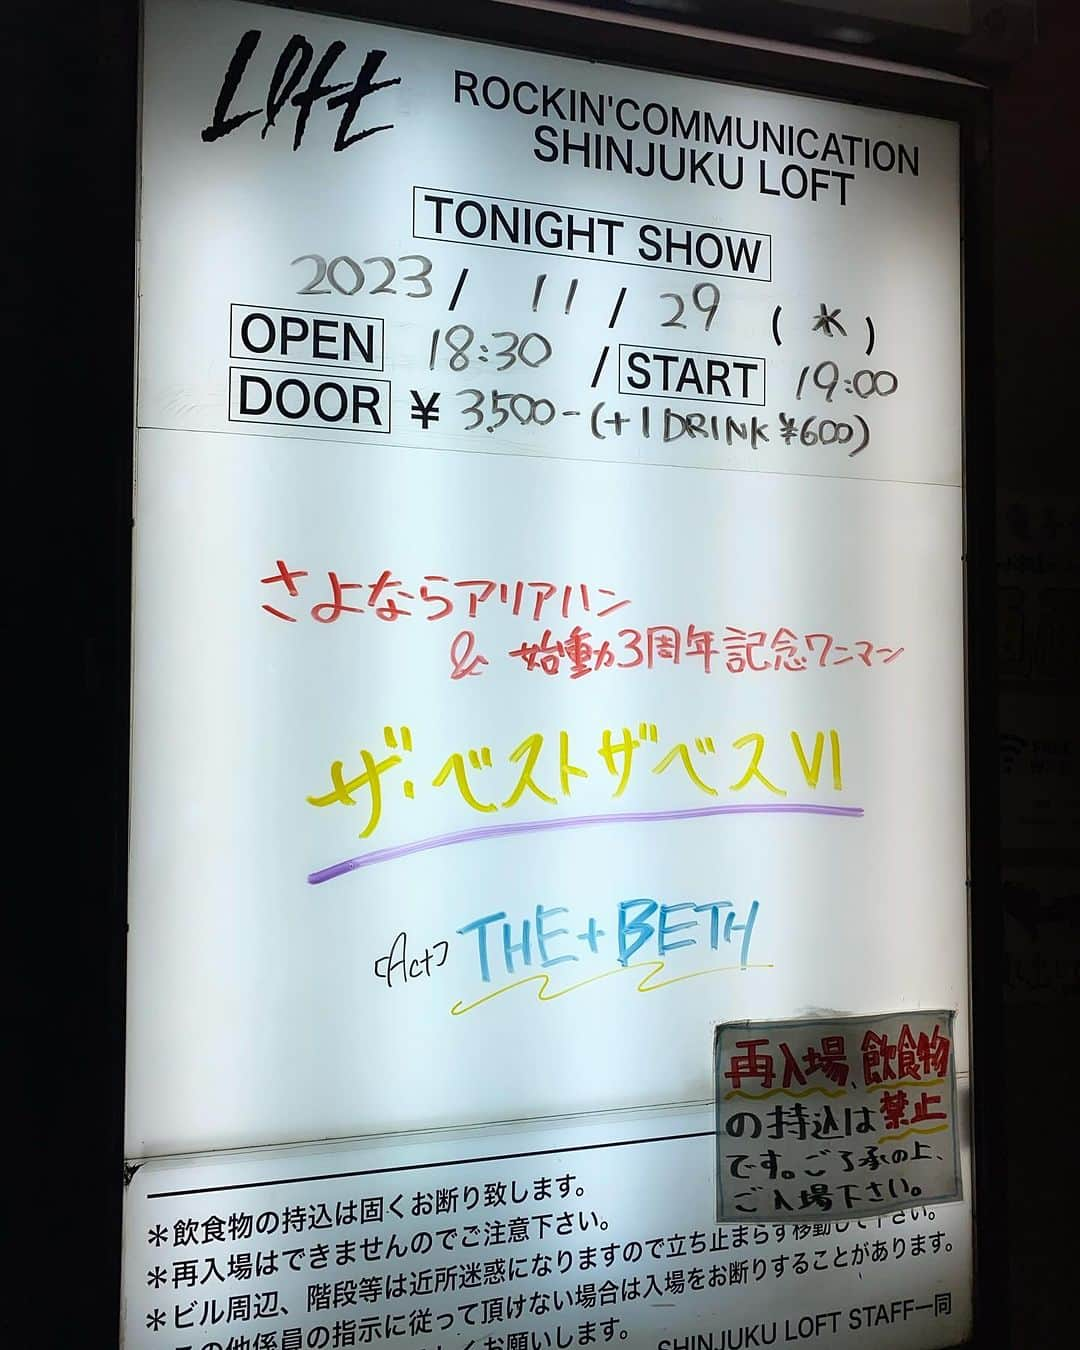 LOFT
ROCKIN'COMMUNICATION
SHINJUKU LOFT
TONIGHT SHOW
2023 / 11 / 29 (水)
OPEN 18:30 / START 19:00
DOOR ¥ 3,500- (+1DRINK ¥600)
さよならアリアハン
& 始動3周年記念ワンマン
ザ・ベストザベス VI
[Act] THE+BETH
再入場、飲食物
の持込は禁止
です。ご了承の上、
ご入場下さい。
＊飲食物の持込は固くお断り致します。
＊再入場はできませんのでご注意下さい。
＊ビル周辺、階段等は近所迷惑になりますので立ち止まらず移動して下さい。
の他係員の指示に従って頂けない場合は入場をお断りすることがあります。
くお願いします。
SHINJUKU LOFT STAFF一同